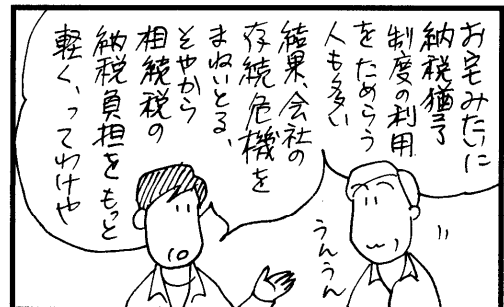 お宅みたいに
納税猶予
制度の利用
をためらう
人も多い
結果、会社の
存続危機を
まねいとる、
そやから
相続税の
納税負担をもっと
軽く、ってわけや
うんうん